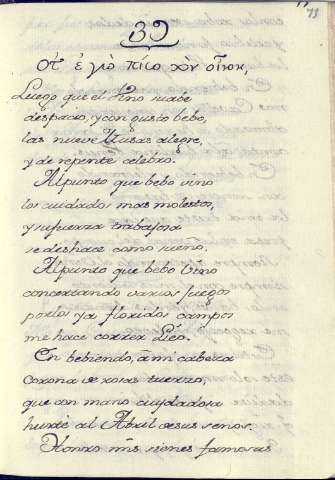 39
Οτ᾽ ἐγὼ πίω τὸν οἶνον,
Luego que el vino suabe
despacio, y con gusto bebo,
las nueve Musas alegre,
y de repente celebro.
Al punto que bebo vino
los cuidados mas molestos,
y su fuerza trabajosa
se deshace como sueño.
Al punto que bebo Vino
concertando varios juegos
por los ya floridos campos
me hace correr Lieo.
En bebiendo, à mi cabeza
corona de rosas tuerzo,
que con mano cuydadosa
hurté al Abril de sus senos.
Honro mis sienes famosas